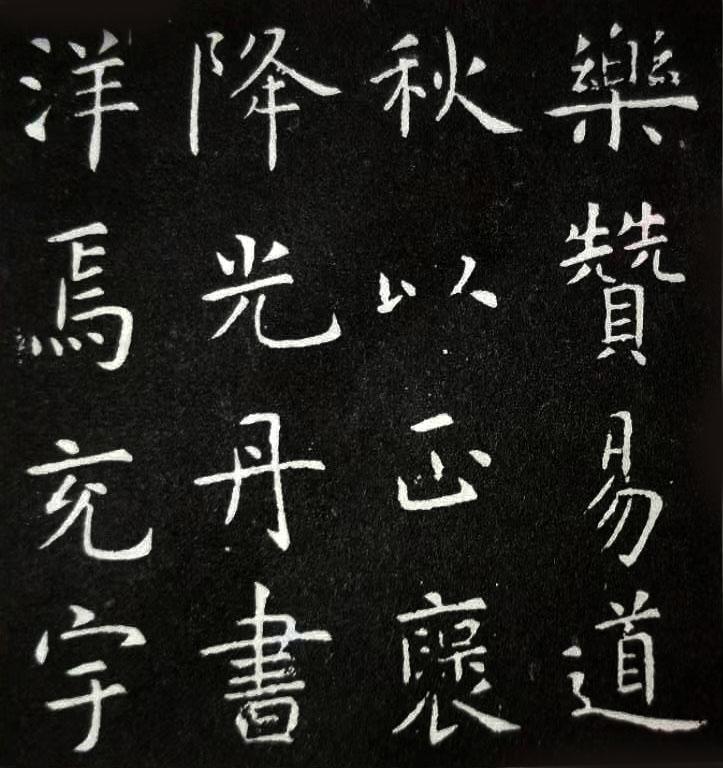 樂贊易道
秋以正褒
降光丹書
洋焉充宇